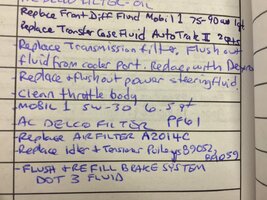 AC DELCO FILTER-OIL
Replace Front Diff Fluid Mobil 1 75-90w 1qt
Replace Transfer Case Fluid AutoTrak II 2qts
Replace Transmission filter, Flush out
fluid from cooler port. Redo, with Dexron
Replace + flush out power steering fluid
- clean throttle body
- MOBIL 1 5W-30 6.5 qt
- AC DELCO FILTER PF61
- Replace AIR FILTER A2014C
- Replace idler + Tensioner Pulleys 89052,
89059
- FLUSH + REFILL BRAKE SYSTEM
DOT 3 FLUID